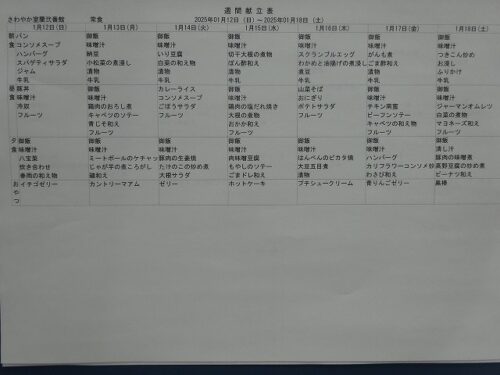 週間献立表
さわやか室蘭弐番館 常食 2025年01月12日（日）～2025年01月18日（土）
1月12日(日) 1月13日(月) 1月14日(火) 1月15日(水) 1月16日(木) 1月17日(金) 1月18日(土)
朝 パン 御飯 御飯 御飯 御飯 御飯 御飯
食 コンソメスープ 味噌汁 味噌汁 味噌汁 味噌汁 味噌汁 味噌汁
ハンバーグ 納豆 いり豆腐 切干大根の煮物 スクランブルエッグ がんも煮 つきこん炒め
スパゲティサラダ 小松菜の煮浸し 白菜の和え物 ぽん酢和え わかめと油揚げの煮浸し ごま酢和え お浸し
ジャム 漬物 漬物 漬物 煮豆 漬物 ふりかけ
牛乳 牛乳 牛乳 牛乳 牛乳 牛乳 牛乳
昼 豚丼 御飯 カレーライス 御飯 山菜そば 御飯 御飯
食 味噌汁 味噌汁 コンソメスープ 味噌汁 おにぎり 味噌汁 味噌汁
冷奴 鶏肉のおろし煮 ごぼうサラダ 鶏肉の塩だれ焼き ポテトサラダ チキン南蛮 ジャーマンオムレツ
フルーツ キャベツのソテー フルーツ 大根の煮物 フルーツ ビーフンソテー 白菜の煮物
青じそ和え おかか和え キャベツの和え物 マヨネーズ和え
フルーツ フルーツ フルーツ フルーツ
夕 御飯 御飯 御飯 御飯 御飯 御飯 御飯
食 味噌汁 味噌汁 味噌汁 味噌汁 味噌汁 味噌汁 清し汁
八宝菜 ミートボールのケチャッ 豚肉の生姜焼 肉味噌豆腐 はんぺんのピカタ焼 ハンバーグ 豚肉の味噌煮
炊き合わせ じゃが芋の煮ころがし たけのこの炒め煮 もやしのソテー 大豆五目煮 カリフラワーコンソメ炒 高野豆腐の炒め煮
春雨の和え物 磯和え 大根サラダ ごまドレ和え 漬物 わさび和え ピーナツ和え
お イチゴゼリー カントリーマアム ゼリー ホットケーキ プチシュークリーム 青りんごゼリー 黒棒
や
つ